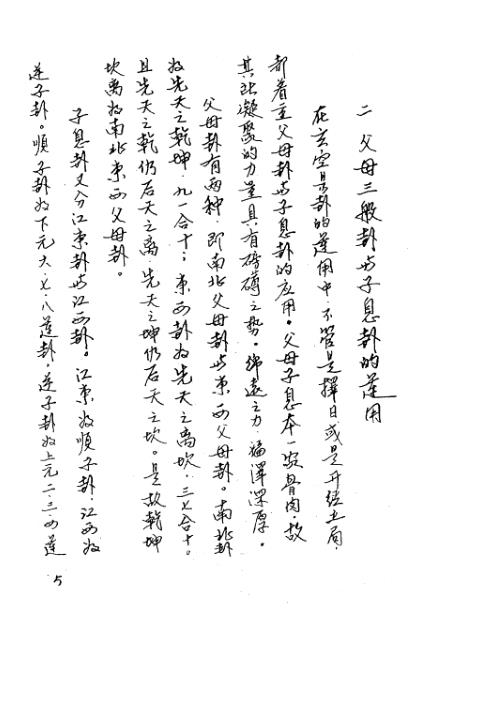 二 父母三般卦与子息卦的運用
在玄空易卦的運用中，不管是擇日或是升经立局，
都着主父母卦与子息卦的应用。父母子息本一家骨肉，故
其张凝聚的力量具有磅礴之势。绵遠之力，猛渾深厚。
父母卦有两种，即南北父母卦与東西父母卦。南北卦
为先天之乾坤，九一合十；東西卦为先天之离坎，三七合十。
且先天之乾仍后天之离，先天之坤仍后天之坎。是故乾坤
坎离为南北東西父母卦。
子息卦又分江東卦与江西卦。江東为順子卦，江西为
逆子卦。順子卦为下元六、七、八運卦，逆子卦为上元二、三、四運
5